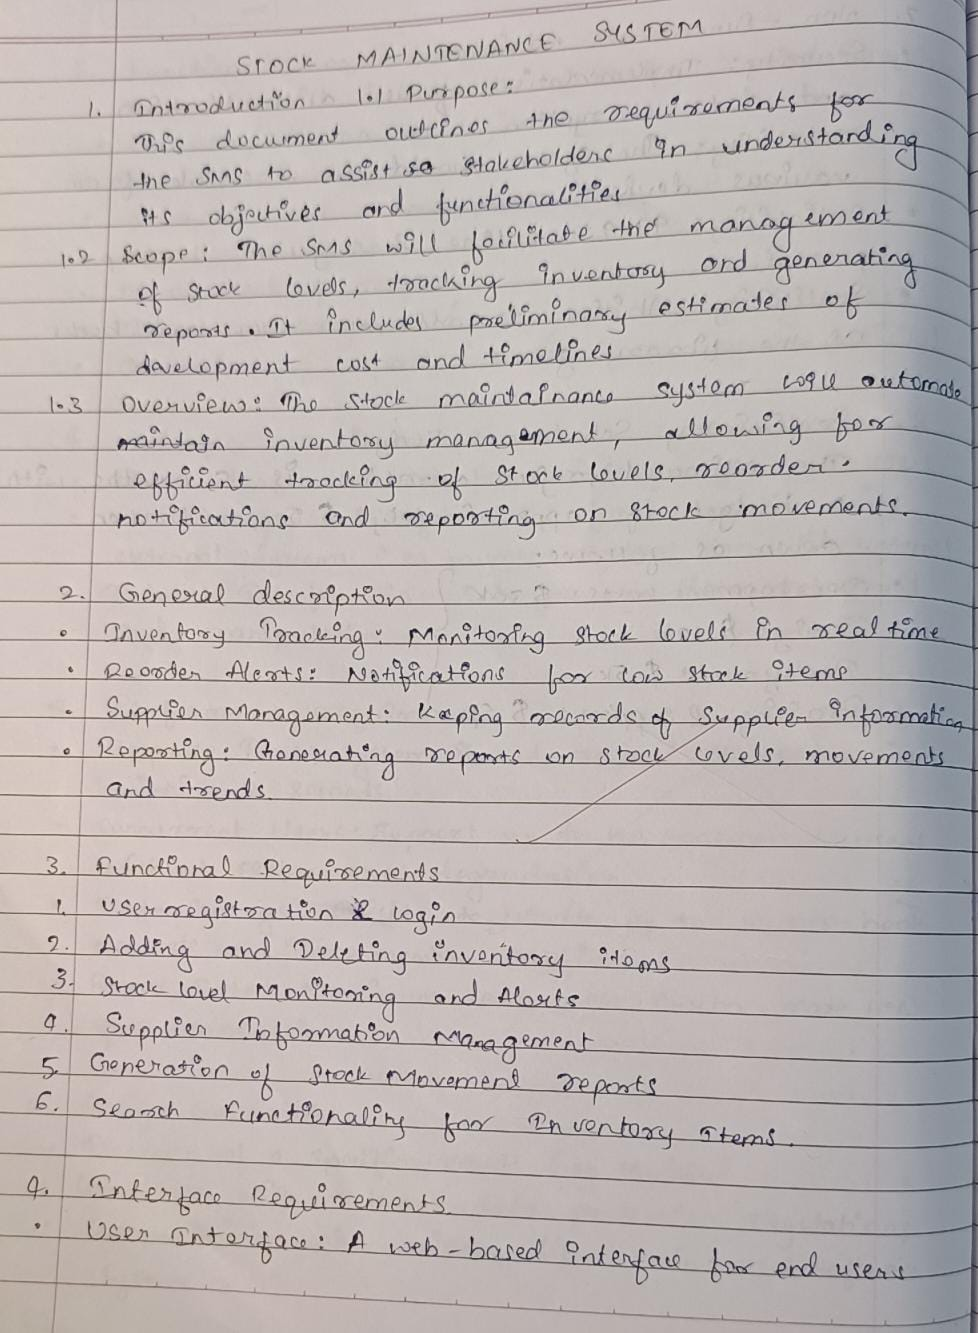 STOCK MAINTENANCE SYSTEM
1. Introduction 1.1 Purpose:
This document outlines the requirements for
the SMS to assist stakeholders in understanding
its objectives and functionalities
1.2 Scope: The SMS will facilitate the management
of stock levels, tracking inventory and generating
reports. It includes preliminary estimates of
development cost and timelines
1.3 Overview: The stock maintainance system will automate
maintain inventory management, allowing for
efficient tracking of stock levels, reorder.
notifications and reporting on stock movements.
2. General description
• Inventory Tracking: Monitoring stock levels in real time
• Reorder Alerts: Notifications for low stock items
• Supplier Management: Keeping records of supplier information
• Reporting: Generating reports on stock levels, movements
and trends.
3. Functional Requirements
1. User registration & login
2. Adding and Deleting inventory items
3. Stock level Monitoring and Alerts
4. Supplier Information Management
5. Generation of Stock Movement reports
6. Search Functionality for Inventory items.
4. Interface Requirements
• User Interface: A web-based interface for end users